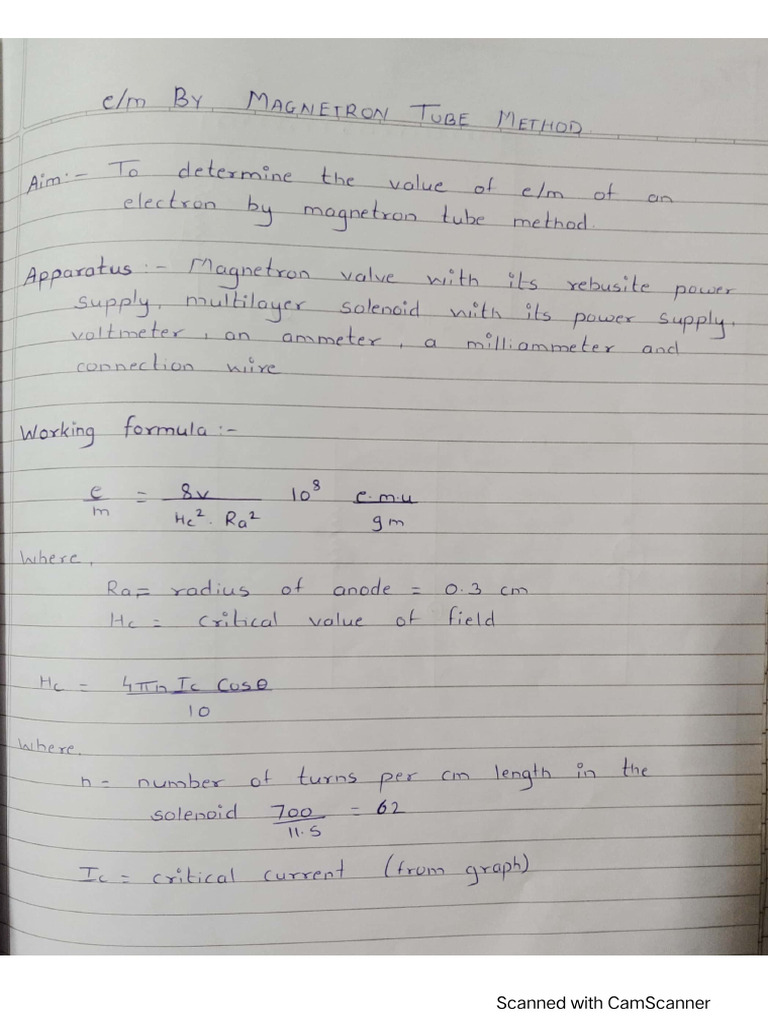 e/m By MAGNETRON TUBE METHOD
Aim:- To determine the value of e/m of an
electron by magnetron tube method.
Apparatus:- Magnetron valve with its rebusite power
supply, multilayer solenoid with its power supply,
voltmeter, an ammeter, a milliammeter and
connection wire
Working formula:-
e/m = 8v/Hc². Ra² 10⁸ e.m.u/gm
Where,
Ra = radius of anode = 0.3 cm
Hc = critical value of field
Hc = 4πn Ic Cosθ/10
Where,
n = number of turns per cm length in the
solenoid 700/11.5 = 62
Ic = critical current (from graph)
Scanned with CamScanner